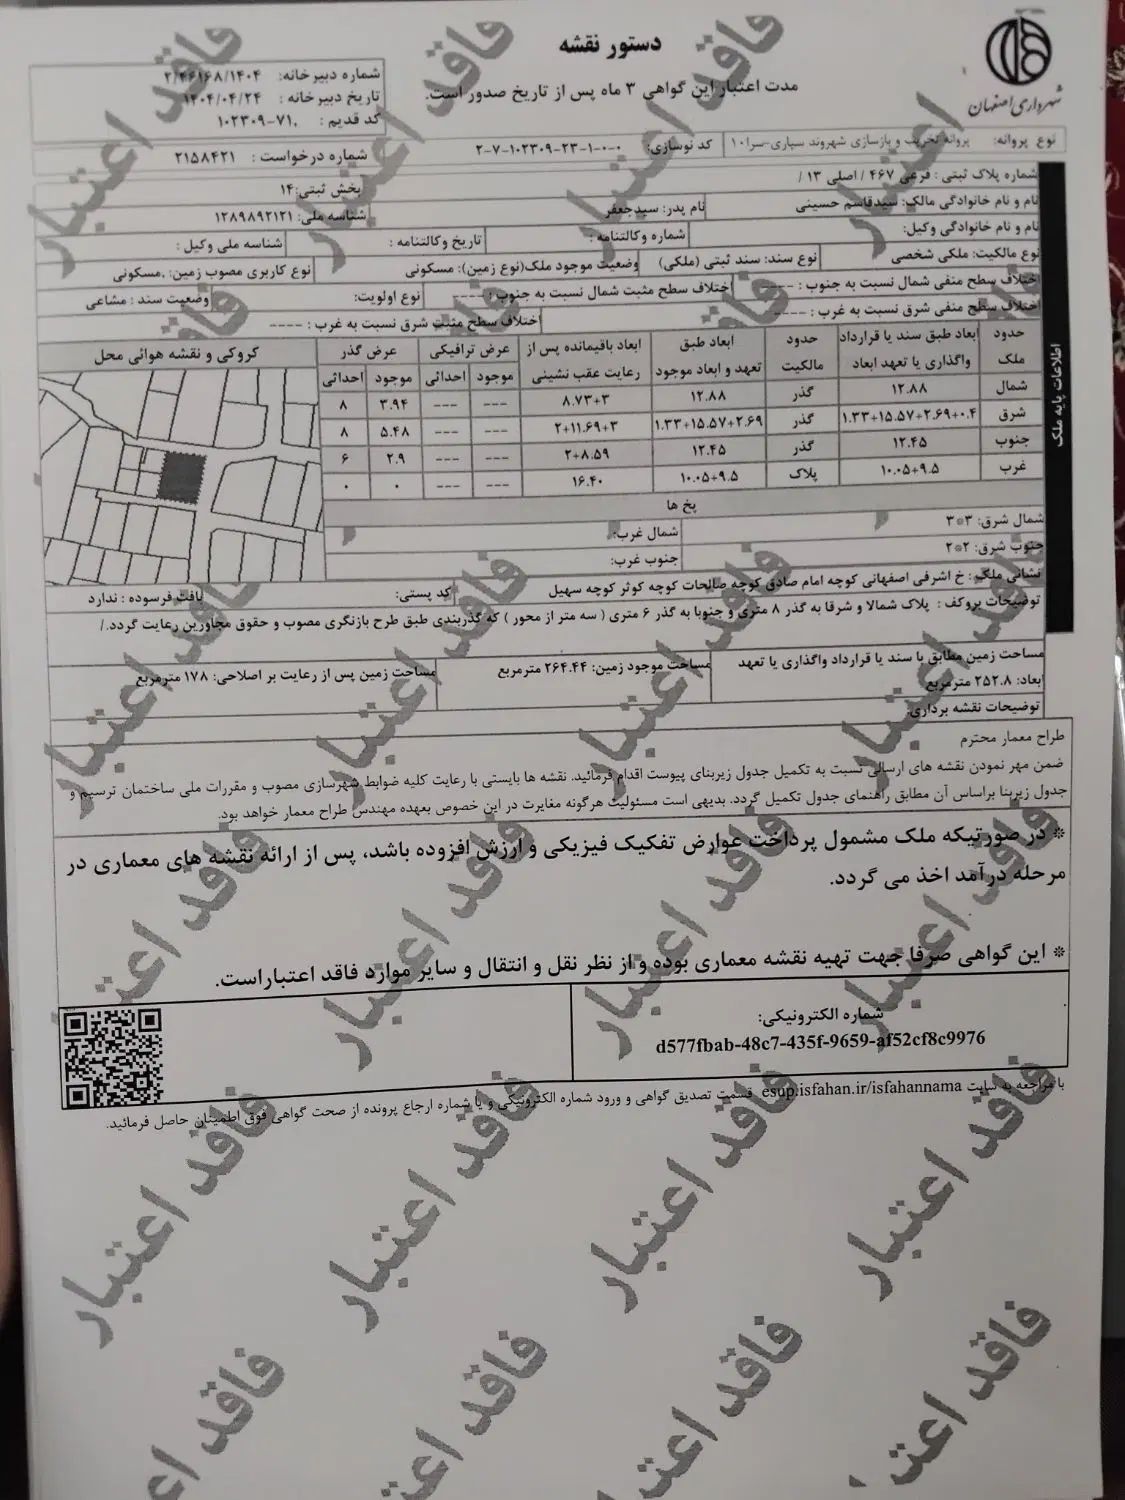 دستور نقشه
مدت اعتبار این گواهی ۳ ماه پس از تاریخ صدور است.
شهرداری اصفهان
شماره دبیرخانه: ۲/۴۶۱۶۸/۱۴۰۴
تاریخ دبیرخانه : ۱۴۰۴/۰۴/۲۴
کد قدیم : ۱۰۲۳۰۹-۷۱.
نوع پروانه: پروانه تخریب و بازسازی شهروند سپاری-سرا۱۰ کد نوسازی: ۲-۷-۱۰۲۳۰۹-۲۳-۱-۰-۰ شماره درخواست : ۲۱۵۸۴۲۱
اطلاعات پایه ملک
شماره پلاک ثبتی : فرعی ۴۶۷ / اصلی ۱۳ / بخش ثبتی:۱۴
نام و نام خانوادگی مالک: سیدقاسم حسینی نام پدر: سیدجعفر شناسه ملی: ۱۲۸۹۸۹۲۱۲۱
نام و نام خانوادگی وکیل: شماره وکالتنامه : تاریخ وکالتنامه : شناسه ملی وکیل :
نوع مالکیت: ملکی شخصی نوع سند: سند ثبتی (ملکی) وضعیت موجود ملک(نوع زمین): مسکونی نوع کاربری مصوب زمین: .مسکونی
اختلاف سطح منفی شمال نسبت به جنوب : ---- اختلاف سطح مثبت شمال نسبت به جنوب : ---- نوع اولویت: وضعیت سند : مشاعی
اختلاف سطح منفی شرق نسبت به غرب : ---- اختلاف سطح مثبت شرق نسبت به غرب : ----
حدود ملک ابعاد طبق سند یا قرارداد واگذاری یا تعهد ابعاد حدود مالکیت ابعاد طبق تعهد و ابعاد موجود ابعاد باقیمانده پس از رعایت عقب نشینی عرض ترافیکی عرض گذر کروکی و نقشه هوائی محل
موجود احداثی موجود احداثی
شمال ۱۲.۸۸ گذر ۱۲.۸۸ ۸.۷۳+۳ --- --- ۳.۹۴ ۸
شرق ۱.۳۳+۱۵.۵۷+۲.۶۹+۰.۴ گذر ۱.۳۳+۱۵.۵۷+۲.۶۹ ۲+۱۱.۶۹+۳ --- --- ۵.۴۸ ۸
جنوب ۱۲.۴۵ گذر ۱۲.۴۵ ۲+۸.۵۹ --- --- ۲.۹ ۶
غرب ۱۰.۰۵+۹.۵ پلاک ۱۰.۰۵+۹.۵ ۱۶.۴۰ --- --- ۰ ۰
پخ ها
شمال شرق: ۳*۳ شمال غرب:
جنوب شرق: ۲*۲ جنوب غرب:
نشانی ملک : خ اشرفی اصفهانی کوچه امام صادق کوچه صالحات کوچه کوثر کوچه سهیل کد پستی: بافت فرسوده : ندارد
توضیحات بروکف : پلاک شمالا و شرقا به گذر ۸ متری و جنوبا به گذر ۶ متری ( سه متر از محور ) که گذربندی طبق طرح بازنگری مصوب و حقوق مجاورین رعایت گردد./
مساحت زمین مطابق با سند یا قرارداد واگذاری یا تعهد ابعاد: ۲۵۲.۸ مترمربع مساحت موجود زمین: ۲۶۴.۴۴ مترمربع مساحت زمین پس از رعایت بر اصلاحی: ۱۷۸ مترمربع
توضیحات نقشه برداری:
طراح معمار محترم
ضمن مهر نمودن نقشه های ارسالی نسبت به تکمیل جدول زیربنای پیوست اقدام فرمائید. نقشه ها بایستی با رعایت کلیه ضوابط شهرسازی مصوب و مقررات ملی ساختمان ترسیم و
جدول زیربنا براساس آن مطابق راهنمای جدول تکمیل گردد. بدیهی است مسئولیت هرگونه مغایرت در این خصوص بعهده مهندس طراح معمار خواهد بود.
* در صورتیکه ملک مشمول پرداخت عوارض تفکیک فیزیکی و ارزش افزوده باشد، پس از ارائه نقشه های معماری در
مرحله درآمد اخذ می گردد.
* این گواهی صرفا جهت تهیه نقشه معماری بوده و از نظر نقل و انتقال و سایر موارد فاقد اعتباراست.
شماره الکترونیکی:
d577fbab-48c7-435f-9659-af52cf8c9976
با مراجعه به سایت esup.isfahan.ir/isfahannama قسمت تصدیق گواهی و ورود شماره الکترونیکی و یا شماره ارجاع پرونده از صحت گواهی فوق اطمینان حاصل فرمائید.
فاقد اعتبار